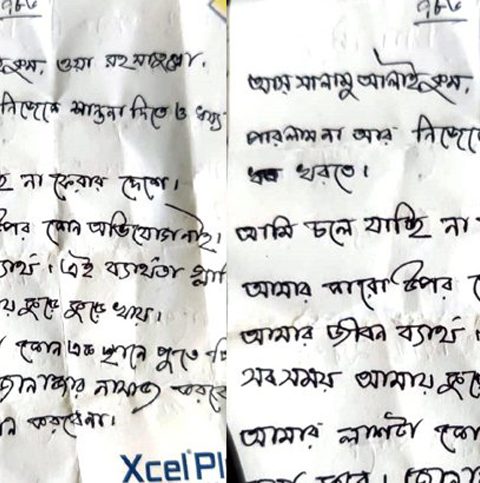 ৭৮৬
ওয়া রহমাতুল্লা,
নিজেকে শান্তনা দিতে ও
না ফেরার দেশে।
কোন অভিযোগ নাই।
ব্যার্থ। এই ব্যার্থতা
কুড়ে কুড়ে খায়।
কোন এক স্থানে পুতে
জানাজার নামাজ
করবেনা।
Xcel Pl
৭৮৬
আস সালামু আলাইকুম,
পারলাম না আর নিজেকে
ধরতে।
আমি চলে যাচ্ছি না
আমার কারো উপর
আমার জীবন ব্যার্থ।
সব সময় আমায় কুড়ে
আমার লাশটা কোন